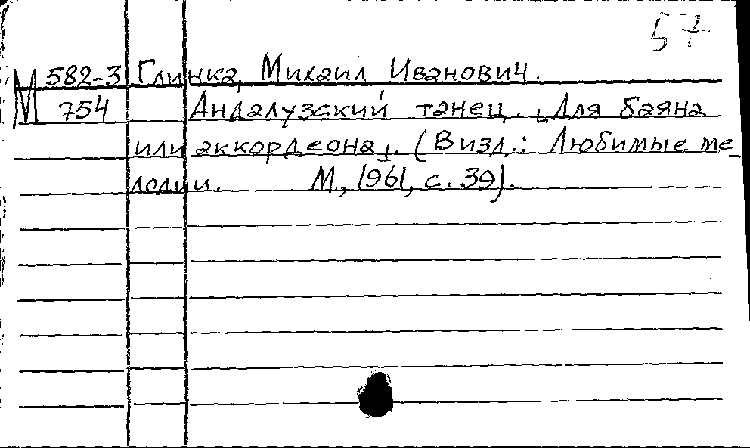 57
М 582-3 Глинка, Михаил Иванович.
754 Андалузский танец. [Для баяна
или аккордеона]. (В изд.: Любимые ме-
лодии. М., 1961, с. 39).